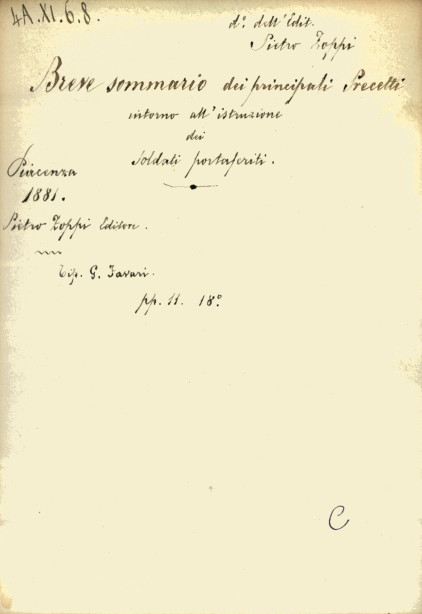 4A.XI.6.8.
d.º dell'Edit.
Pietro Zoppi
Breve sommario dei principali Precetti
intorno all'istruzione
dei
soldati portaferiti.
Piacenza
1881.
Pietro Zoppi Editore.
Tip. G. Favari.
pp. 11. 18º
C